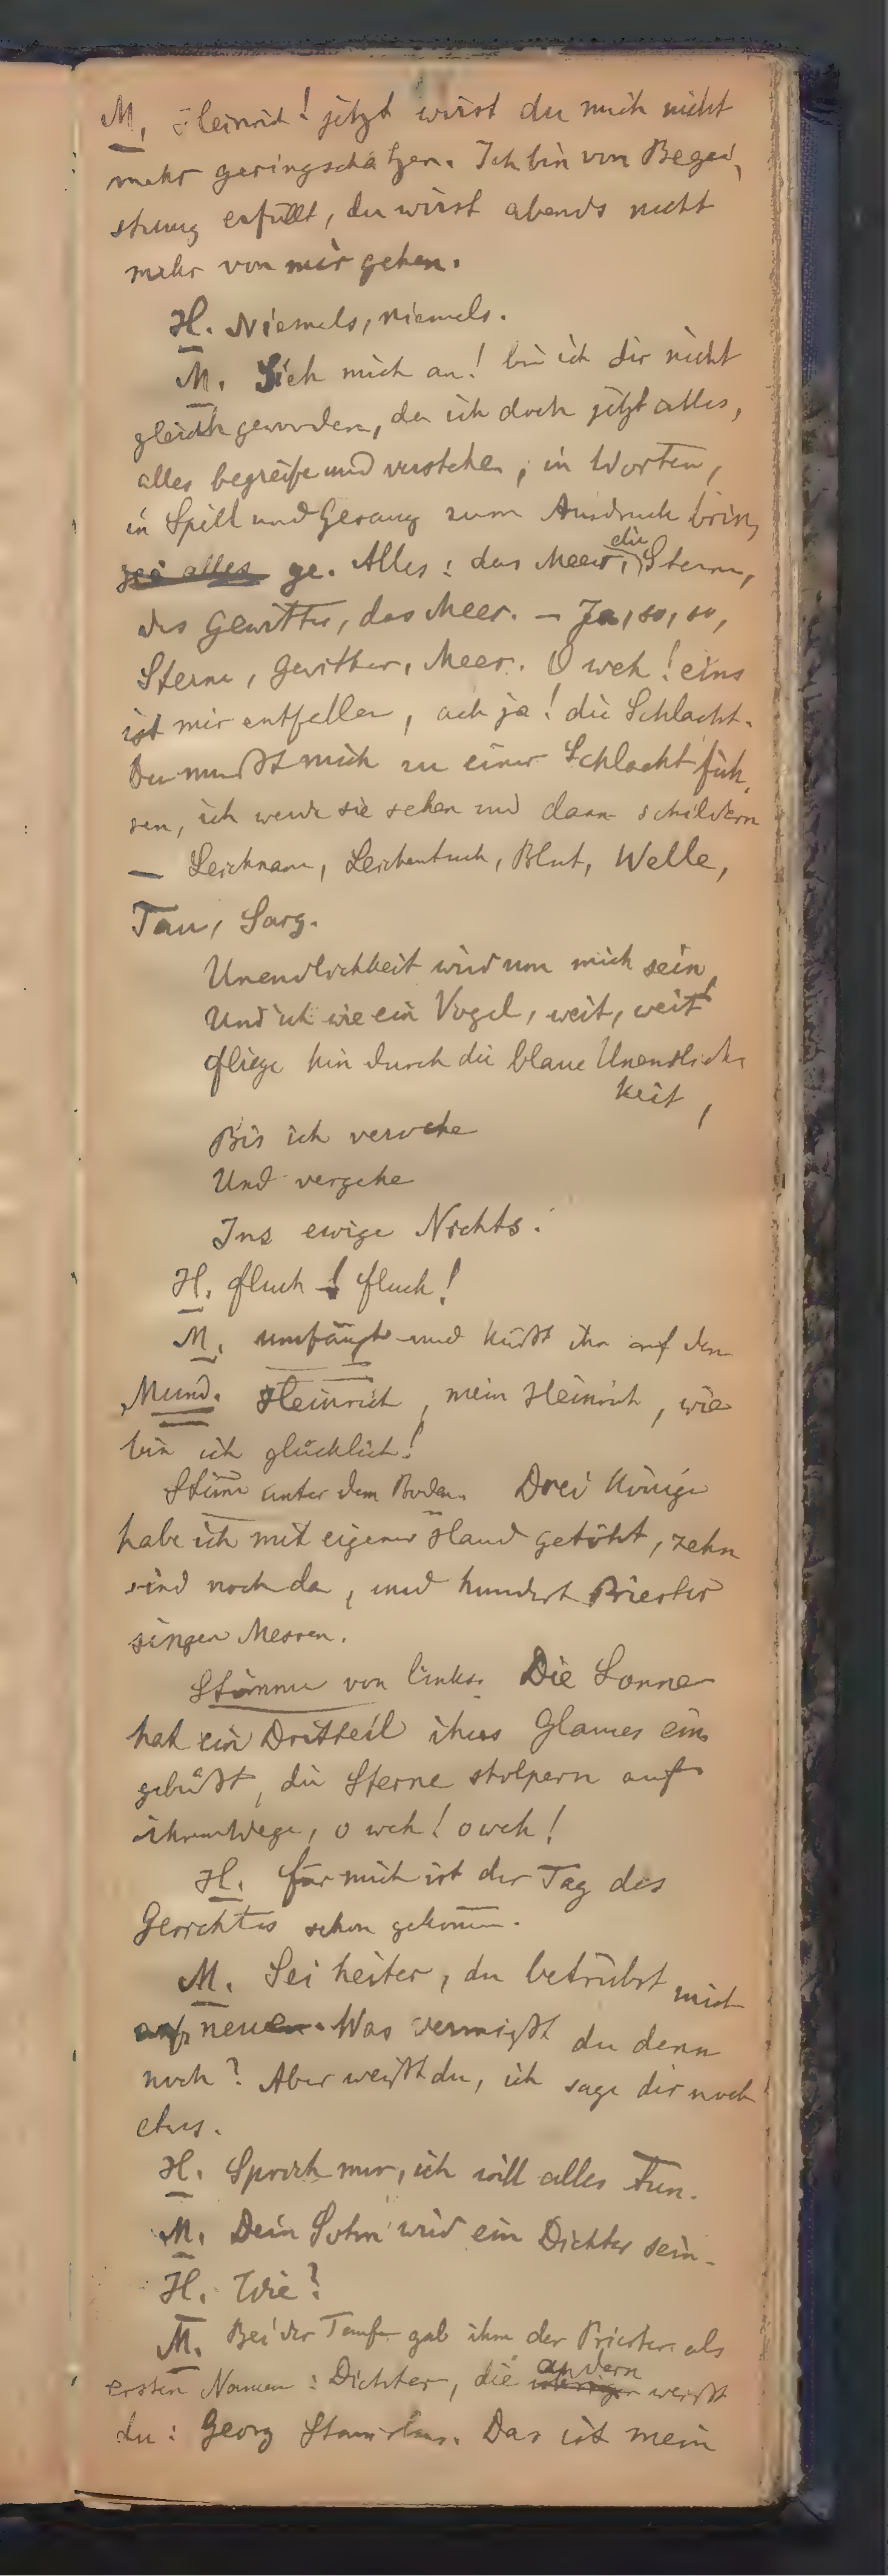 M. Heinrich! jetzt wirst du mich nicht
mehr geringschätzen. Ich bin von Begei,
sterung erfüllt, du wirst abends nicht
mehr von mir gehen.
H. Niemals, niemals.
M. Sieh mich an! bin ich dir nicht
gleich geworden, da ich doch jetzt alles,
alles begreife und verstehe, in Worten,
in Spill und Gesang zum Ausdruck brin,
alles ge. Alles: das Meer, die Sterne,
das Gewitter, das Meer. – Ja, so, so,
Sterne, Gewitter, Meer. O weh! eins
ist mir entfallen, ach ja! die Schlacht.
Du mußt mich zu einer Schlacht füh,
ren, ich werde sie sehen und dann schildern
— Leichnam, Leichentuch, Blut, Welle,
Tau, Sarg.
Unendlichkeit wird um mich sein,
Und ich wie ein Vogel, weit, weit
fliege hin durch die blaue Unendlich
keit,
Bis ich verwehe
Und vergehe
Ins ewige Nichts.
H. Fluch! Fluch!
M. umfängt und küßt ihn auf den
Mund. Heinrich, mein Heinrich, wie
bin ich glücklich!
Stimme unter dem Boden. Drei Könige
habe ich mit eigener Hand getötet, zehn
sind noch da, und hundert Priester
singen Messen.
Stimme von links. Die Sonne
hat ein Dritteil ihres Glanzes ein
gebüßt, die Sterne stolpern auf
ihrem Wege, o weh! o weh!
H. Für mich ist der Tag des
Gerichtes schon gekommen.
M. Sei heiter, du betrübst mich
aufs neue. Was vermißt du denn
noch? Aber weißt du, ich sage dir noch
etwas.
H. Sprich nur, ich will alles tun.
M. Dein Sohn wird ein Dichter sein.
H. Wie?
M. Bei der Taufe gab ihm der Priester als
ersten Namen: Dichter, die andern weißt
du: Georg Stanislaus. Das ist mein